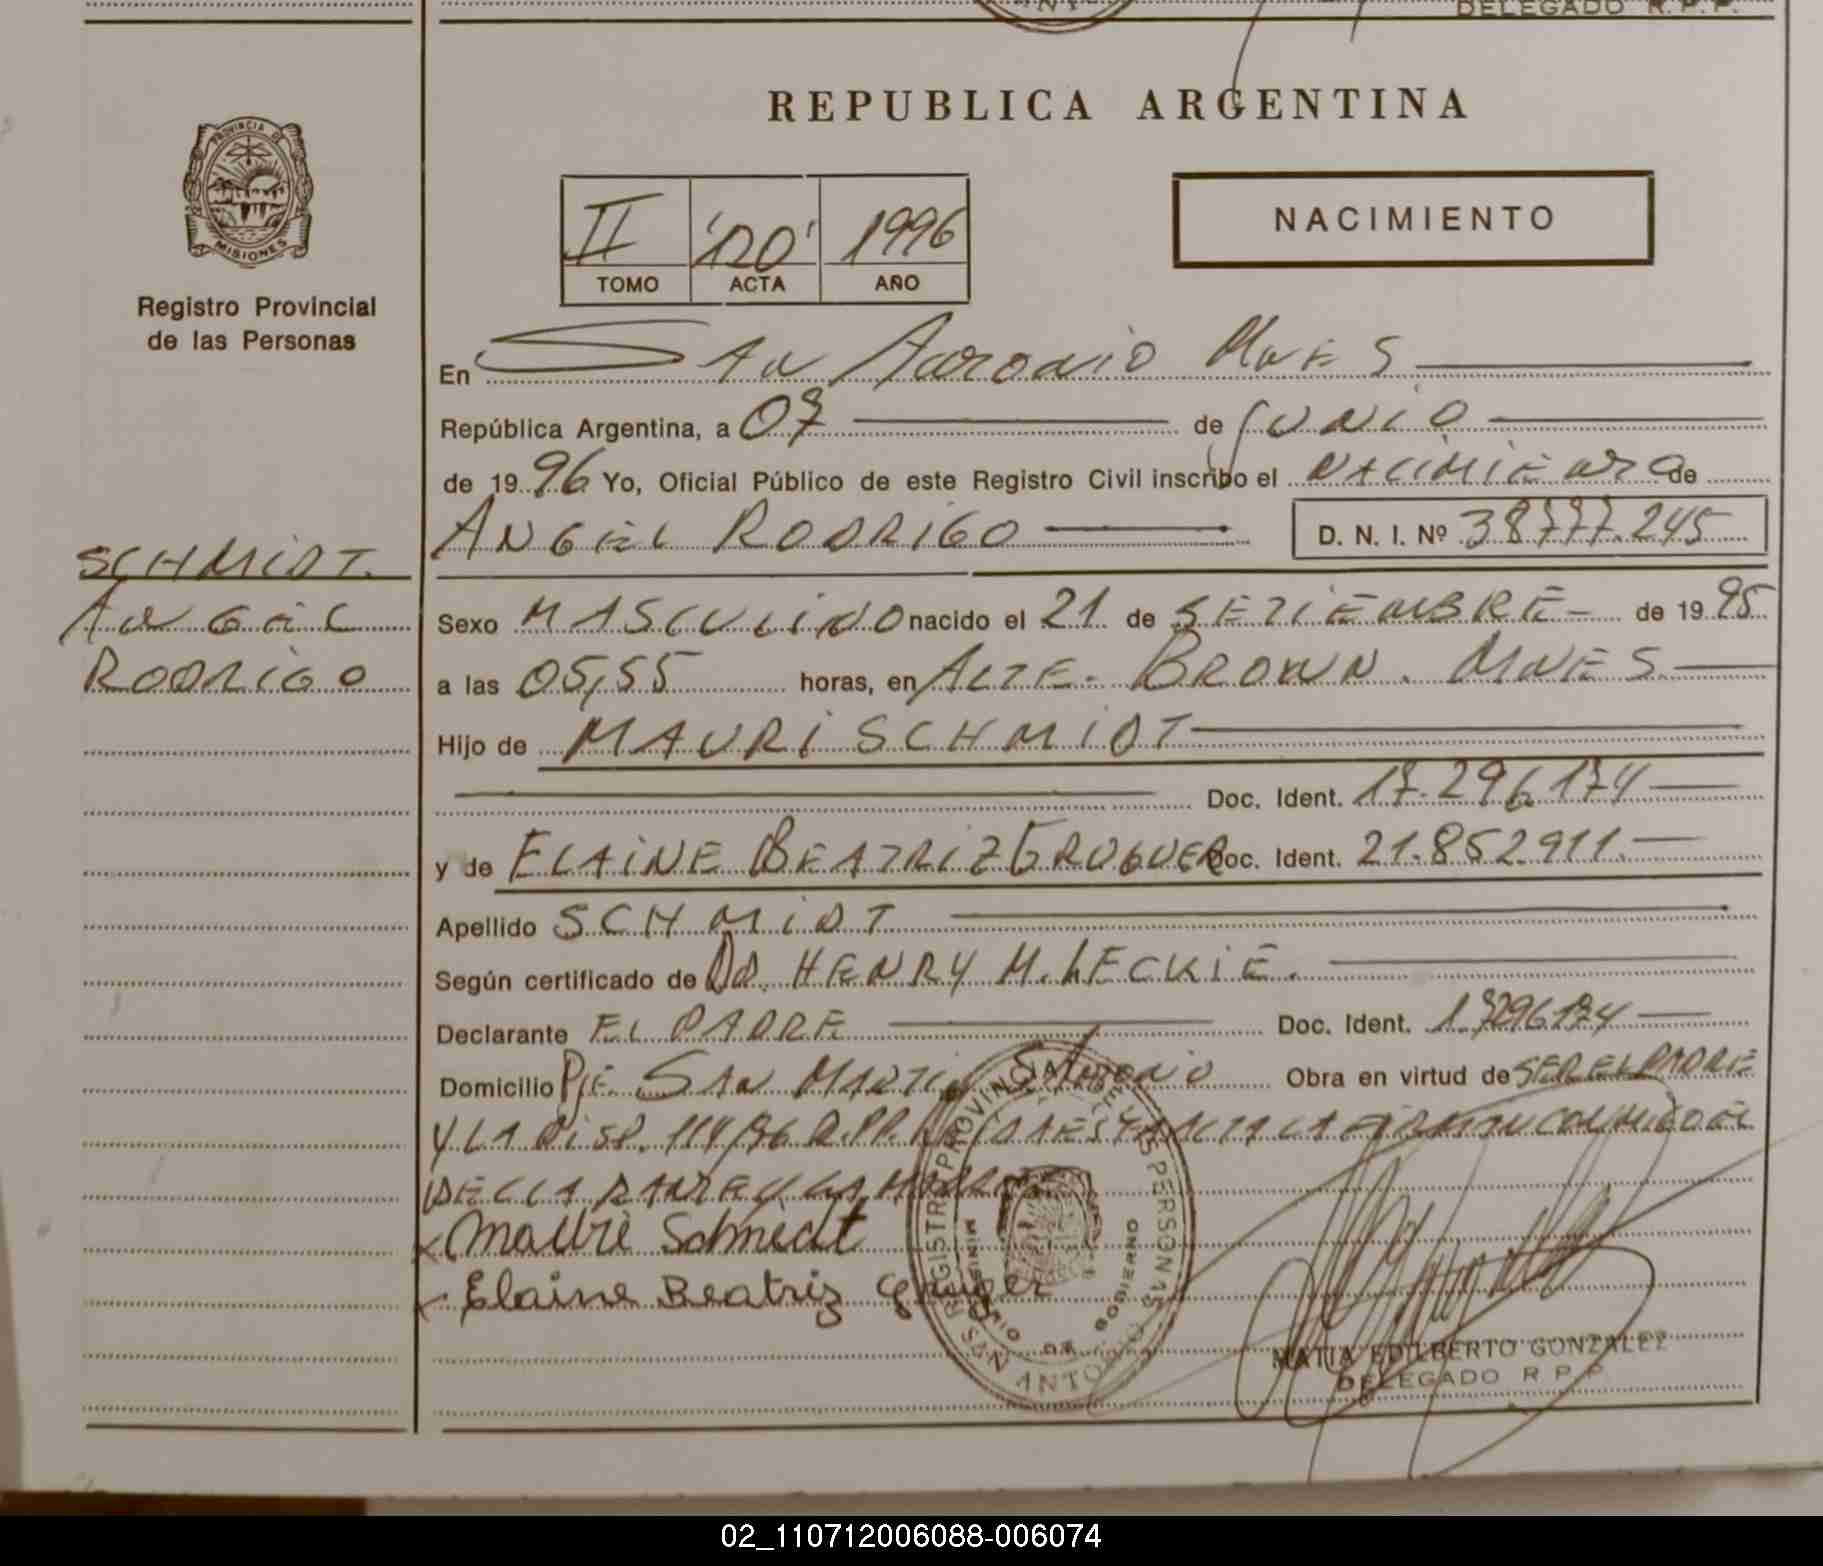 DELEGADO R.P.P.
REPUBLICA ARGENTINA
PROVINCIA DE
MISIONES
Registro Provincial
de las Personas
II '120' 1996
TOMO ACTA AÑO
NACIMIENTO
En SAN ANTONIO MNES
República Argentina, a 07 de JUNIO
de 1996 Yo, Oficial Público de este Registro Civil inscribo el NACIMIENTO de
ANGEL RODRIGO D. N. I. Nº 38777.245
SCHMIDT.
ANGEL
RODRIGO
Sexo MASCULINO nacido el 21 de SETIEMBRE de 1995
a las 05,55 horas, en ALTE. BROWN. MNES
Hijo de MAURI SCHMIDT
Doc. Ident. 17.296174
y de ELAINE BEATRIZ GRUGUER Doc. Ident. 21.852.911.
Apellido SCHMIDT
Según certificado de DR. HENRY M. LECKIE.
Declarante EL PADRE Doc. Ident. 17296174
Domicilio PJE SAN MARTIN S. ANTONIO Obra en virtud de SER EL PADRE
Y LA DISP. 114/96 R.P.P. LA FIRMAN CONMIGO EL
LA MADRE
x Mauri Schmidt
x Elaine Beatriz Gruger
REGISTRO PROVINCIAL DE LAS PERSONAS
MINISTERIO DE GOBIERNO
SAN ANTONIO
MATIA EDILBERTO GONZALEZ
DELEGADO R P P
02_110712006088-006074